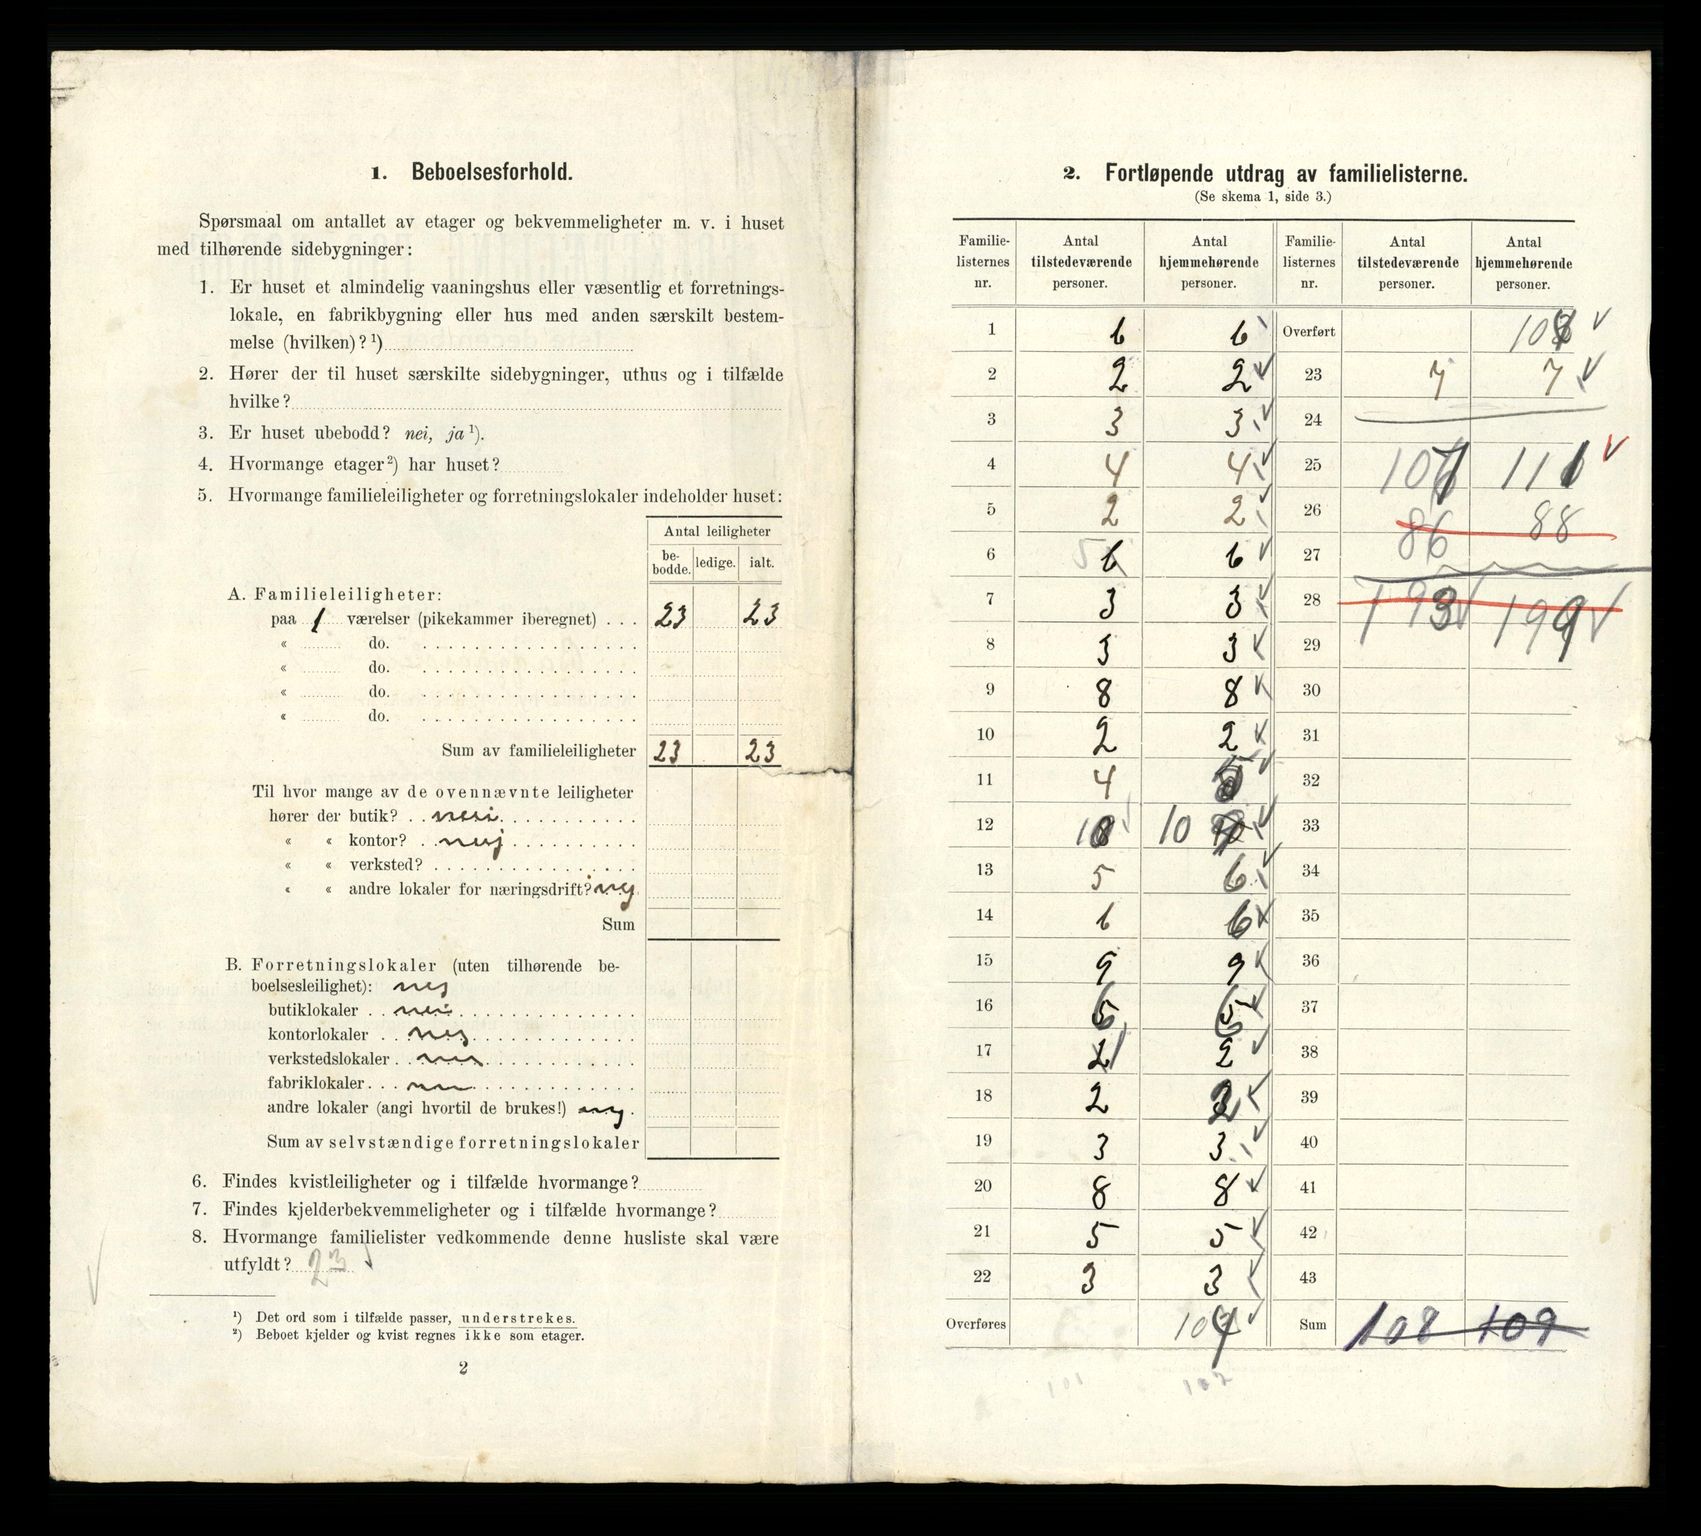 1. Beboelsesforhold.
Spørsmaal om antallet av etager og bekvemmeligheter m. v. i huset
med tilhørende sidebygninger:
1. Er huset et almindelig vaaningshus eller væsentlig et forretnings-
lokale, en fabrikbygning eller hus med anden særskilt bestem-
melse (hvilken)? ¹)
2. Hører der til huset særskilte sidebygninger, uthus og i tilfælde
hvilke?
3. Er huset ubebodd? nei, ja ¹).
4. Hvormange etager ²) har huset?
5. Hvormange familieleiligheter og forretningslokaler indeholder huset:
Antal leiligheter
be-
bodde. ledige. ialt.
A. Familieleiligheter:
paa 1 værelser (pikekammer iberegnet) . . . 23 23
« do.
« do.
« do.
« do.
Sum av familieleiligheter 23 23
Til hvor mange av de ovennævnte leiligheter
hører der butik? nei
« « kontor? nej
« « verksted?
« « andre lokaler for næringsdrift? nej
Sum
B. Forretningslokaler (uten tilhørende be-
boelsesleilighet): nej
butiklokaler nei
kontorlokaler nej
verkstedslokaler nei
fabriklokaler
andre lokaler (angi hvortil de brukes!) nej.
Sum av selvstændige forretningslokaler
6. Findes kvistleiligheter og i tilfælde hvormange?
7. Findes kjelderbekvemmeligheter og i tilfælde hvormange?
8. Hvormange familielister vedkommende denne husliste skal være
utfyldt? 23
¹) Det ord som i tilfælde passer, understrekes.
²) Beboet kjelder og kvist regnes ikke som etager.
2
2. Fortløpende utdrag av familielisterne.
(Se skema 1, side 3.)
Familie-
listernes
nr. Antal
tilstedeværende
personer. Antal
hjemmehørende
personer. Familie-
listernes
nr. Antal
tilstedeværende
personer. Antal
hjemmehørende
personer.
1 6 6 Overført
2 2 2 23 7 7
3 3 3 24
4 4 4 25 111
5 2 2 26 88
6 5 6 27 86
7 3 3 28 193 199
8 3 3 29
9 8 8 30
10 2 2 31
11 4 32
12 10 33
13 5 6 34
14 6 6 35
15 9 9 36
16 6 6 37
17 1 2 38
18 2 2 39
19 3 3 40
20 8 8 41
21 5 5 42
22 3 3 43
Overføres 104 Sum 108 109
101 102